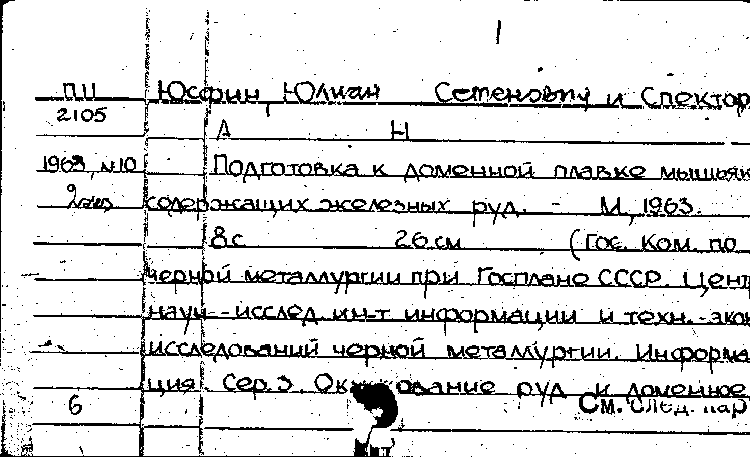 1
ПЦ Юсфин, Юлиан Семенович и Спектор,
2105
А Н
1963, №10 Подготовка к доменной плавке мышьяк
2экз содержащих железных руд. - М, 1963.
8с 26см (Гос. Ком. по
черной металлургии при Госплане СССР. Цент
науч-исслед ин-т информации и техн.-экон
исследований черной металлургии. Информа
ция. Сер.3. Ок кование руд и доменное
6 См. след. кар